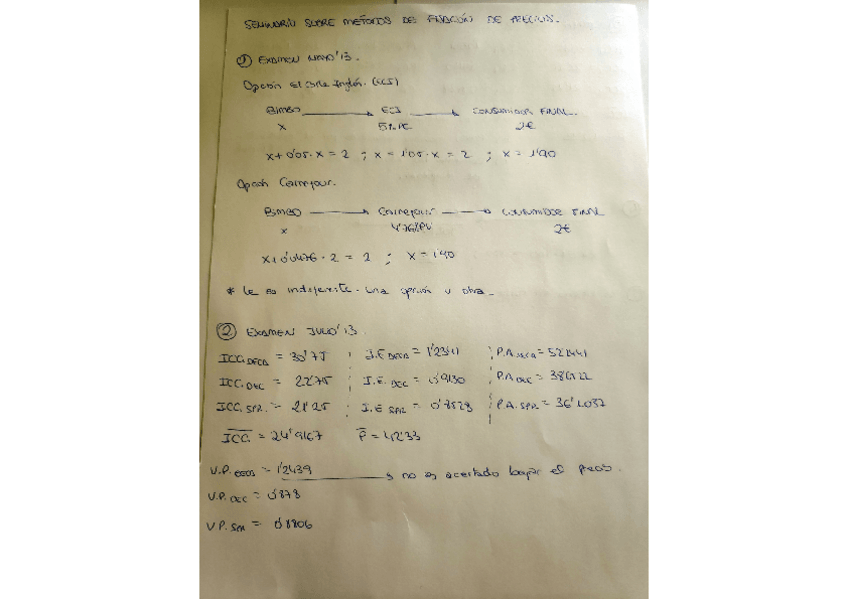 SEMINARIO SOBRE METODOS DE FIJACIÓN DE PRECIOS.
① EXAMEN MAYO'13.
Opción El Corte Inglés. (ECI)
BIMBO → ECI → CONSUMIDOR FINAL.
x 5% PC 2€
x + 0'05·x = 2 ; x = 1'05·x = 2 ; x = 1'90
Opción Carrefour.
BIMBO → Carrefour → CONSUMIDOR FINAL
x 4'76%PV 2€
x + 0'0476 · 2 = 2 ; x = 1'90
* Le es indiferente una opción u otra.
② EXAMEN JULIO'13.
= 30'75 = 1'2341 = 52'2441
ICC. DEC = 22'75 I.E. DEC = 0'9130 P.A. DEC =
ICC. SPR. = 21'25 I.E SPR = 0'8528 P.A. SPR = 36'1037
ICC = 24'9167 P = 42'33
V.P. = 1'2439 → no es acertado bajar el precio.
V.P. DEC = 0'878
V.P. SPR = 0'8806